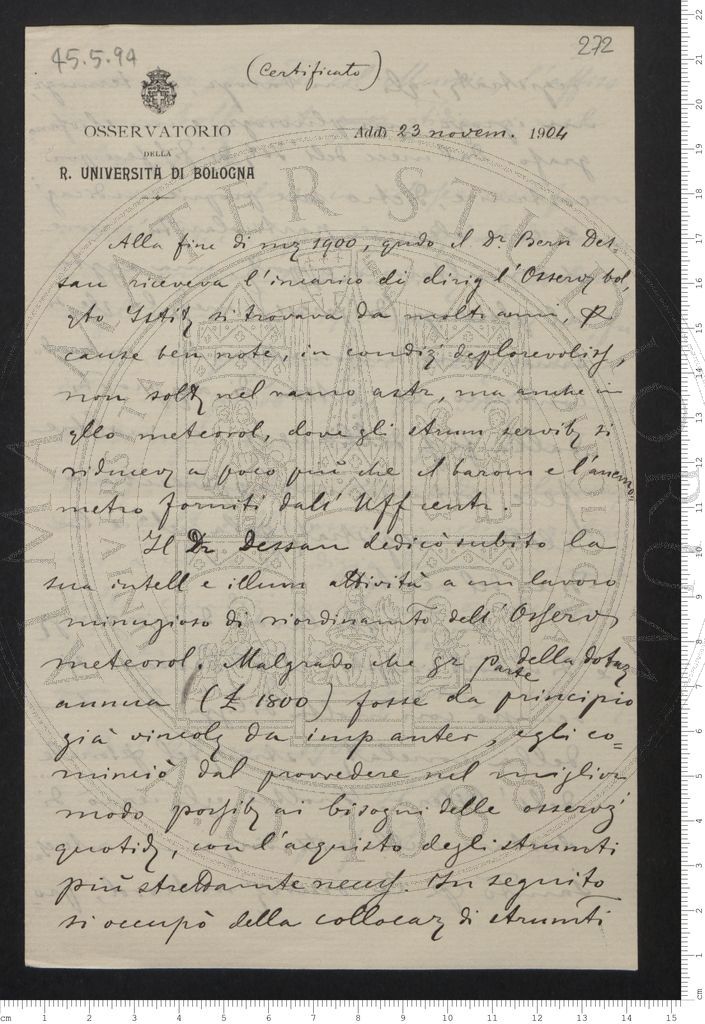 45.5.94
272
(Certificato)
OSSERVATORIO
DELLA
R. UNIVERSITÀ DI BOLOGNA
Addì 23 novem. 1904
Alla fine di mz 1900, qudo il Dr. Bern Des-
sau riceveva l'incarico di dirig l'Osserv bol,
Istit si trovava da molti anni,
cause ben note, in condiz
non solt nel ramo astr, ma anche in
qllo meteorol, dove gli strum servib si
a poco più che il barom e l'anemo
metro forniti dall' Uff centr.
Il Dr Dessau dedicò subito la
sua intell e illum attività a un lavoro
minuzioso di riordinamto dell' Osserv
meteorol. Malgrado che gr parte della dotaz
annua (£ 1800) fosse da principio
già vincol da imp anter, egli co=
minciò dal provvedere nel miglior
modo possib ai bisogni delle osservz
quotid, con l'acquisto degli strumti
più strettamte necess. In seguito
si occupò della collocaz di strumti
ALMA MATER STUDIORUM